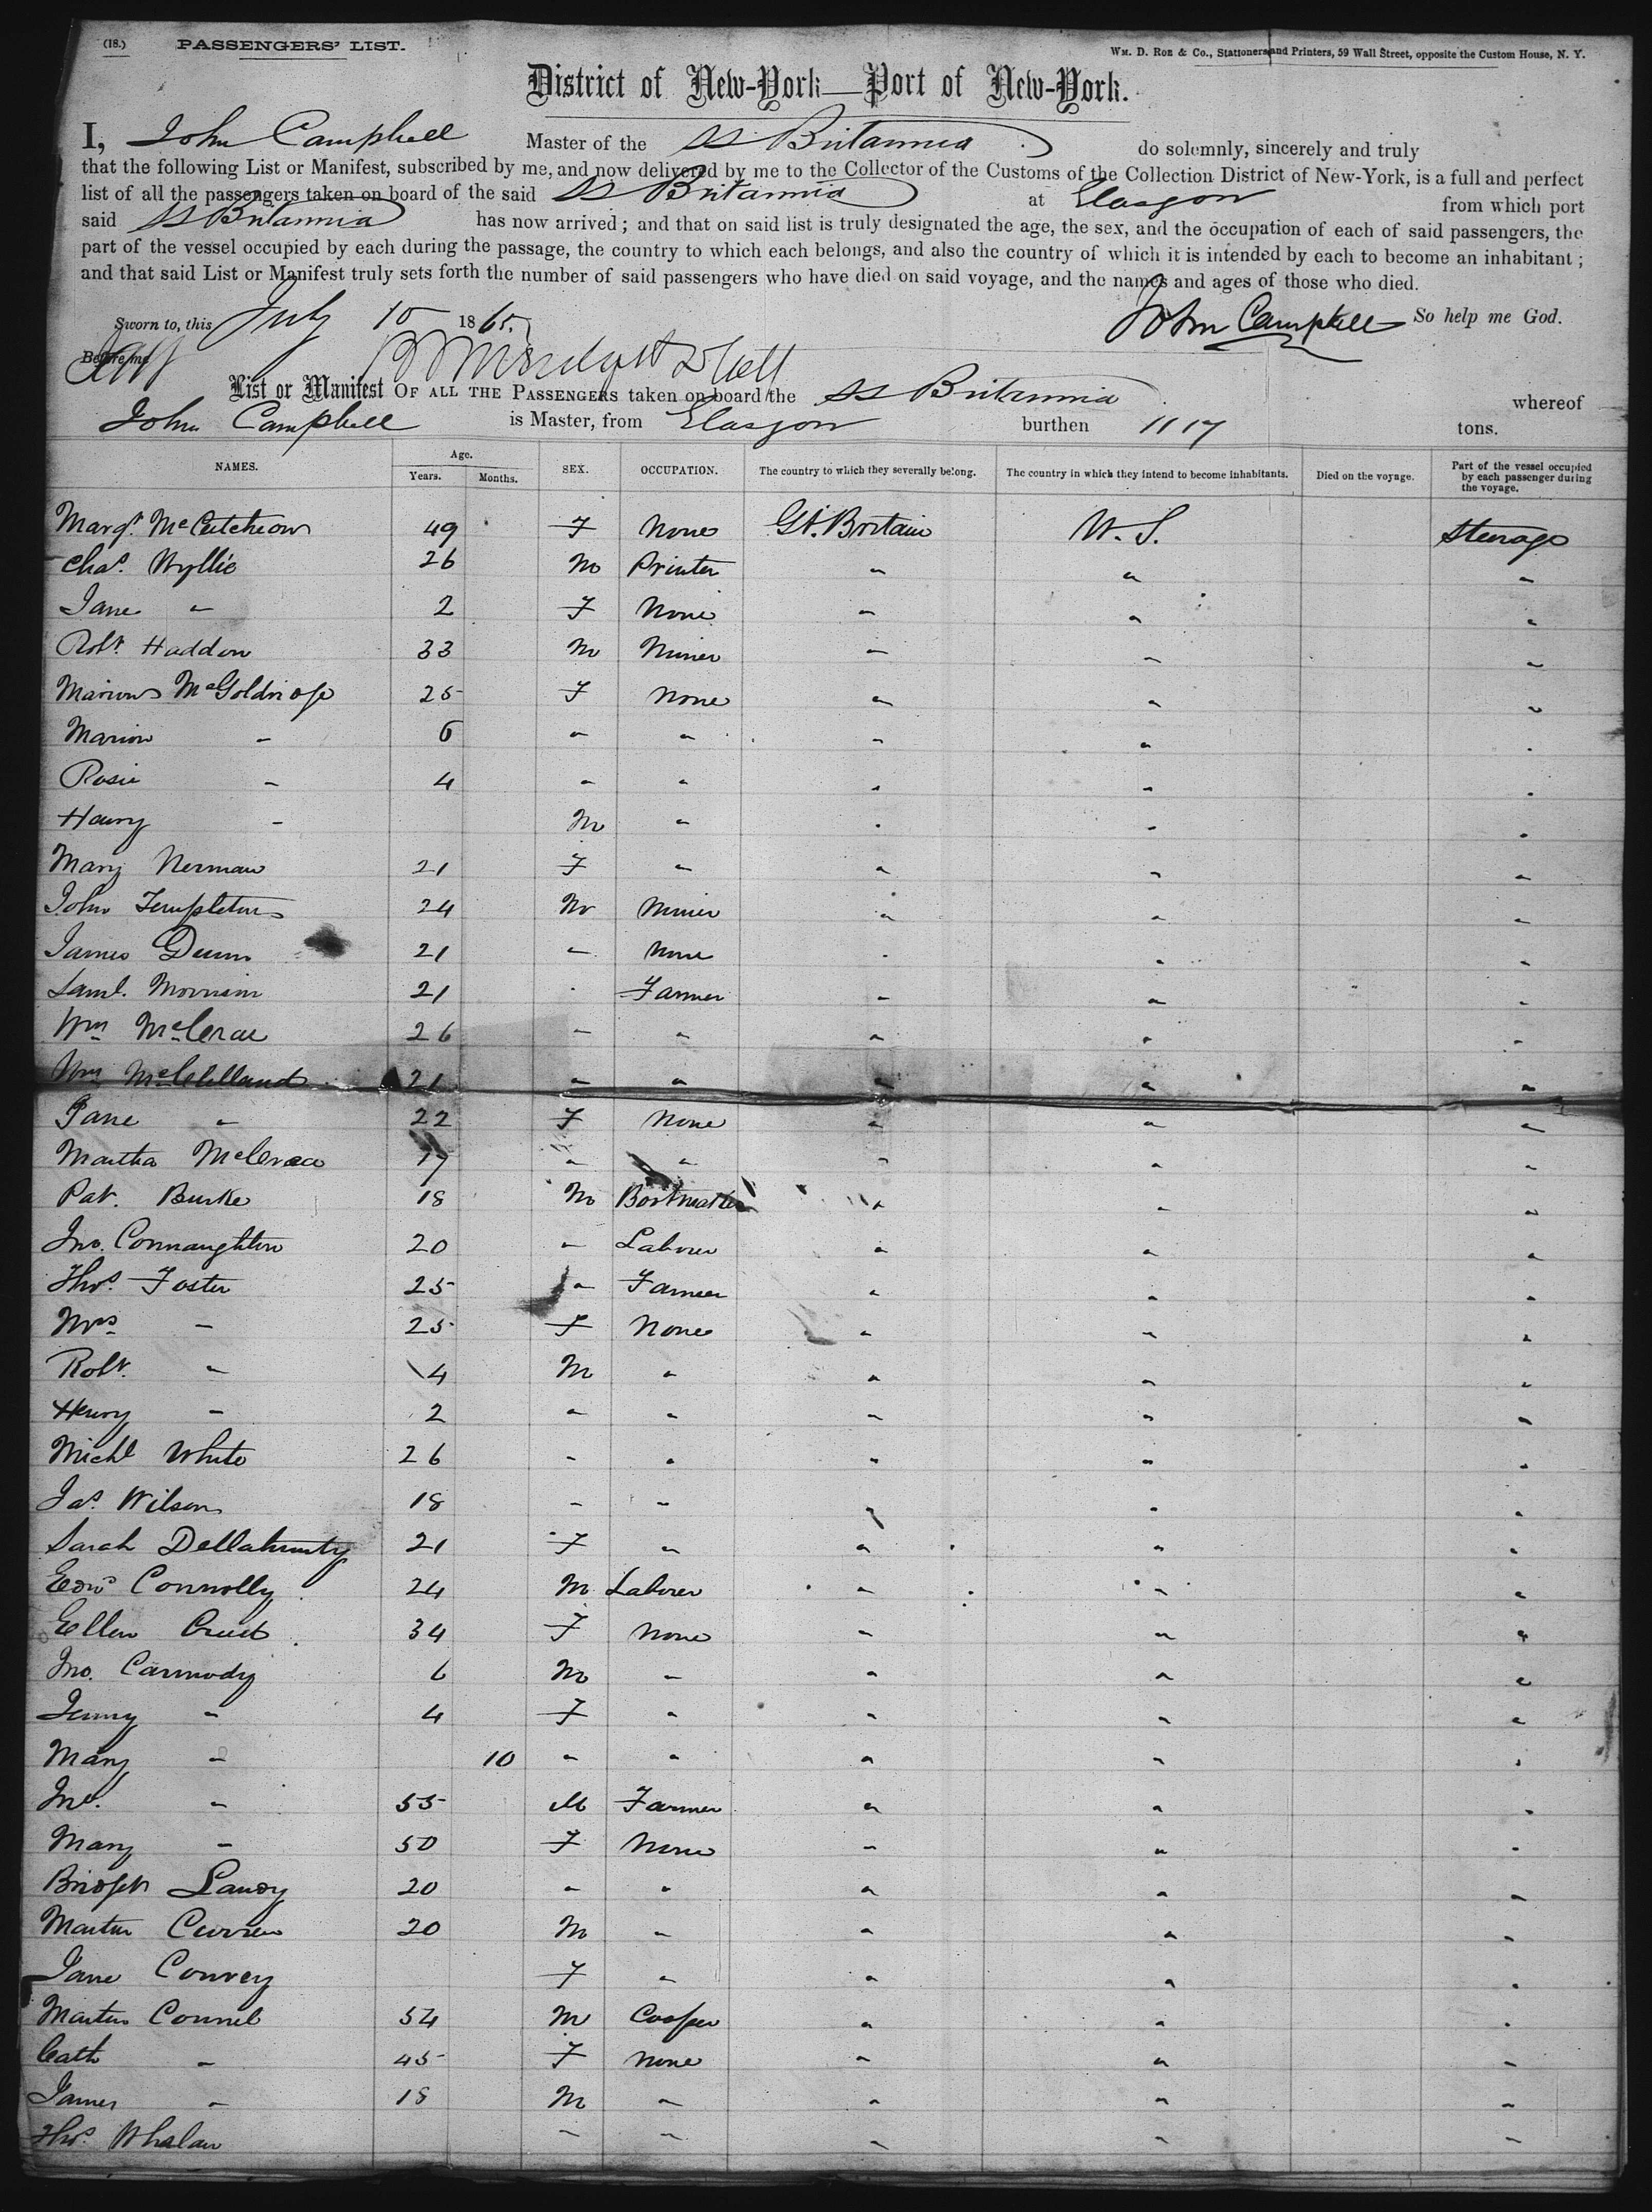 (18.) PASSENGERS' LIST. WM. D. ROE & CO., Stationers and Printers, 59 Wall Street, opposite the Custom House, N. Y.
District of New-York—Port of New-York.
I, John Campbell Master of the SS Britannia do solemnly, sincerely and truly
that the following List or Manifest, subscribed by me, and now delivered by me to the Collector of the Customs of the Collection District of New-York, is a full and perfect
list of all the passengers taken on board of the said SS Britannia at Glasgow from which port
said SS Britannia has now arrived; and that on said list is truly designated the age, the sex, and the occupation of each of said passengers, the
part of the vessel occupied by each during the passage, the country to which each belongs, and also the country of which it is intended by each to become an inhabitant;
and that said List or Manifest truly sets forth the number of said passengers who have died on said voyage, and the names and ages of those who died.
Sworn to, this July 10 1865. John Campbell So help me God.
Before me
List or Manifest OF ALL THE PASSENGERS taken on board the SS Britannia whereof
John Campbell is Master, from Glasgow burthen 1117 tons.
NAMES. Age. Years. Months. SEX. OCCUPATION. The country to which they severally belong. The country in which they intend to become inhabitants. Died on the voyage. Part of the vessel occupied by each passenger during the voyage.
Margt. McCutcheon 49 F None Gt. Britain U.S. Steerage
Chas. Wyllie 26 M Printer " " "
Jane " 2 F None " " "
Robt. Haddow 33 M Miner " " "
Marion 25 F None " " "
Marion " 6 " " " " "
Rosie " 4 " " " " "
Henry " M " " " "
Mary 21 F " " " "
John Templeton 24 M Miner " " "
James Dunn 21 " None " " "
Saml. Morrison 21 " Farmer " " "
Wm McCrae 26 " " " " "
Wm McClelland 21 " " " " "
Jane " 22 F None " " "
Martha McCrae 17 " " " " "
Pat. Burke 18 M Bootmaker " " "
Jno. Connaughton 20 " Laborer " " "
Thos. Foster 25 " Farmer " " "
Mrs " 25 F None " " "
Robt. " 4 M " " " "
Henry " 2 " " " " "
Michl White 26 " " " " "
Jas. Wilson 18 " " " " "
Sarah Dellahunty 21 F " " " "
Edwd Connolly 24 M Laborer " " "
Ellen 34 F None " " "
Jno. Carmody 6 M " " " "
Jenny " 4 F " " " "
Mary " 10 " " " " "
Jno. " 55 M Farmer " " "
Mary " 50 F None " " "
Bridget 20 " " " " "
Martin Curren 20 M " " " "
Jane Convey F " " " "
Martin Connel 54 M Cooper " " "
Cath " 45 F None " " "
James " 18 M " " " "
Thos. Whalan " " " " "